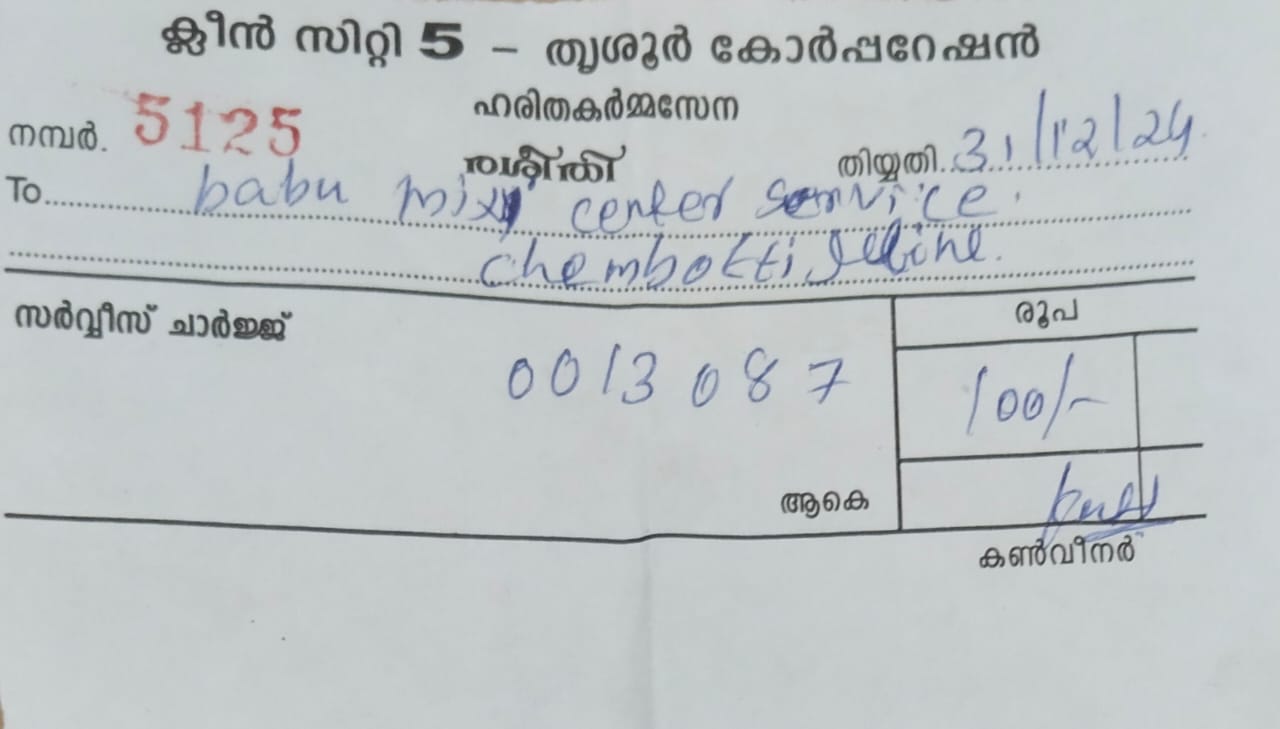 ക്ലീൻ സിറ്റി 5 – തൃശൂർ കോർപ്പറേഷൻ
ഹരിതകർമ്മസേന
നമ്പർ. 5125 രശീതി തിയ്യതി 31/12/24
To babu mixy center service.
chembotti
സർവ്വീസ് ചാർജ്ജ് രൂപ
0013087 100/-
ആകെ
കൺവീനർ